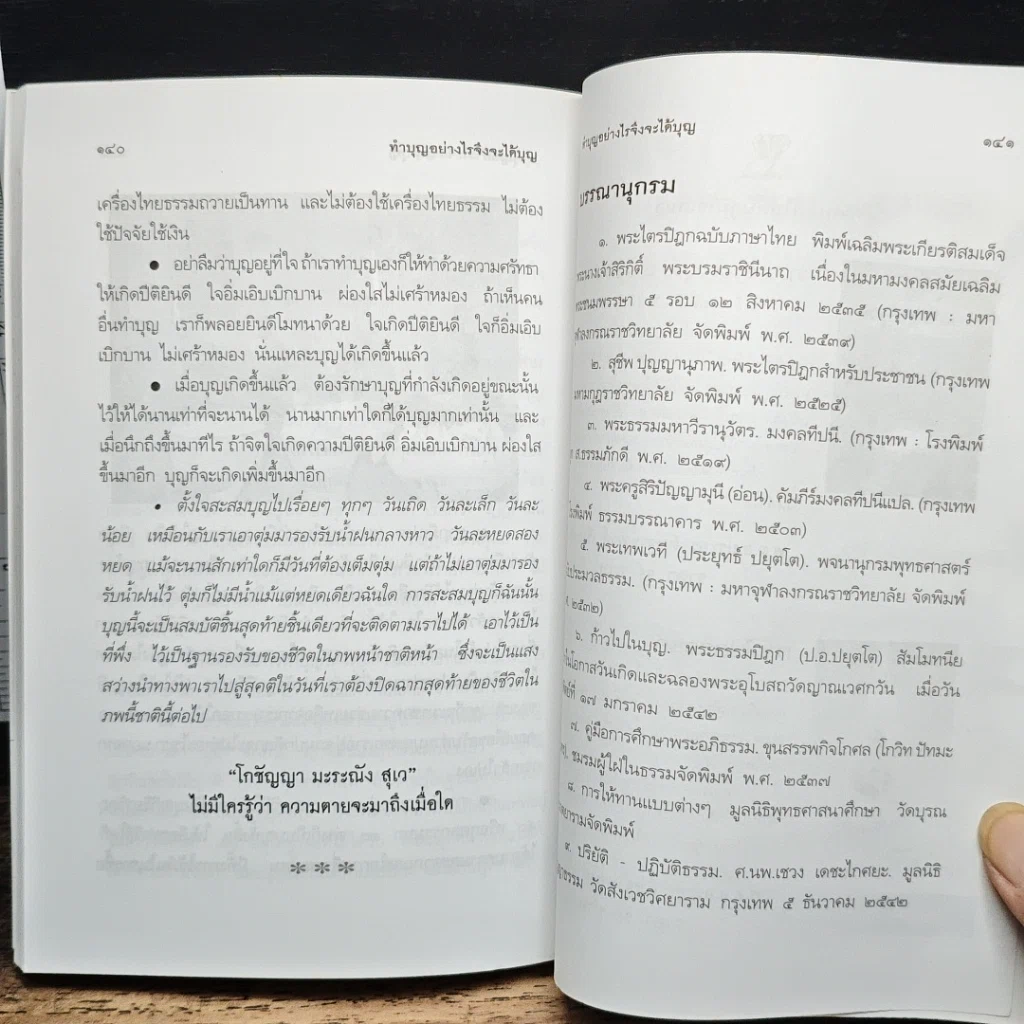 ๑๔๐ ทำบุญอย่างไรจึงจะได้บุญ
เครื่องไทยธรรมถวายเป็นทาน และไม่ต้องใช้เครื่องไทยธรรม ไม่ต้อง
ใช้ปัจจัยใช้เงิน
● อย่าลืมว่าบุญอยู่ที่ใจ ถ้าเราทำบุญเองก็ให้ทำด้วยความศรัทธา
ให้เกิดปีติยินดี ใจอิ่มเอิบเบิกบาน ผ่องใสไม่เศร้าหมอง ถ้าเห็นคน
อื่นทำบุญ เราก็พลอยยินดีโมทนาด้วย ใจเกิดปีติยินดี ใจก็อิ่มเอิบ
เบิกบาน ไม่เศร้าหมอง นั่นแหละบุญได้เกิดขึ้นแล้ว
● เมื่อบุญเกิดขึ้นแล้ว ต้องรักษาบุญที่กำลังเกิดอยู่ขณะนั้น
ไว้ให้ได้นานเท่าที่จะนานได้ นานมากเท่าใดก็ได้บุญมากเท่านั้น และ
เมื่อนึกถึงขึ้นมาทีไร ถ้าจิตใจเกิดความปีติยินดี อิ่มเอิบเบิกบาน ผ่องใส
ขึ้นมาอีก บุญก็จะเกิดเพิ่มขึ้นมาอีก
• ตั้งใจสะสมบุญไปเรื่อยๆ ทุกๆ วันเถิด วันละเล็ก วันละ
น้อย เหมือนกับเราเอาตุ่มมารองรับน้ำฝนกลางหาว วันละหยดสอง
หยด แม้จะนานสักเท่าใดก็มีวันที่ต้องเต็มตุ่ม แต่ถ้าไม่เอาตุ่มมารอง
รับน้ำฝนไว้ ตุ่มก็ไม่มีน้ำแม้แต่หยดเดียวฉันใด การสะสมบุญก็ฉันนั้น
บุญนี้จะเป็นสมบัติชิ้นสุดท้ายชิ้นเดียวที่จะติดตามเราไปได้ เอาไว้เป็น
ที่พึ่ง ไว้เป็นฐานรองรับของชีวิตในภพหน้าชาติหน้า ซึ่งจะเป็นแสง
สว่างนำทางพาเราไปสู่สุคติในวันที่เราต้องปิดฉากสุดท้ายของชีวิตใน
ภพนี้ชาตินี้ต่อไป
“โกชัญญา มะระณัง สุเว”
ไม่มีใครรู้ว่า ความตายจะมาถึงเมื่อใด
***
ทำบุญอย่างไรจึงจะได้บุญ ๑๔๑
บรรณานุกรม
๑. พระไตรปิฎกฉบับภาษาไทย พิมพ์เฉลิมพระเกียรติสมเด็จ
พระนางเจ้าสิริกิติ์ พระบรมราชินีนาถ เนื่องในมหามงคลสมัยเฉลิม
พระชนมพรรษา ๕ รอบ ๑๒ สิงหาคม ๒๕๓๕ (กรุงเทพ : มหา
จุฬาลงกรณราชวิทยาลัย จัดพิมพ์ พ.ศ. ๒๕๓๙)
๒. สุชีพ ปุญญานุภาพ. พระไตรปิฎกสำหรับประชาชน (กรุงเทพ
มหามกุฎราชวิทยาลัย จัดพิมพ์ พ.ศ. ๒๕๒๕)
๓. พระธรรมมหาวีรานุวัตร. มงคลทีปนี. (กรุงเทพ : โรงพิมพ์
ส.ธรรมภักดี พ.ศ. ๒๕๑๙)
๔. พระครูสิริปัญญามุนี (อ่อน). คัมภีร์มงคลทีปนีแปล. (กรุงเทพ
โรงพิมพ์ ธรรมบรรณาคาร พ.ศ. ๒๕๐๓)
๕. พระเทพเวที (ประยุทธ์ ปยุตโต). พจนานุกรมพุทธศาสตร์
ประมวลธรรม. (กรุงเทพ : มหาจุฬาลงกรณราชวิทยาลัย จัดพิมพ์
๒๕๓๒)
๖. ก้าวไปในบุญ. พระธรรมปิฎก (ป.อ.ปยุตโต) สัมโมทนีย
ในโอกาสวันเกิดและฉลองพระอุโบสถวัดญาณเวศกวัน เมื่อวัน
๑๗ มกราคม ๒๕๔๒
๗. คู่มือการศึกษาพระอภิธรรม. ขุนสรรพกิจโกศล (โกวิท ปัทมะ
ชมรมผู้ใฝ่ในธรรมจัดพิมพ์ พ.ศ. ๒๕๓๗
๘. การให้ทานแบบต่างๆ มูลนิธิพุทธศาสนาศึกษา วัดบุรณ
ยารามจัดพิมพ์
๙. ปริยัติ - ปฏิบัติธรรม. ศ.นพ.เชวง เดชะไกศยะ. มูลนิธิ
ธรรม วัดสังเวชวิศยาราม กรุงเทพ ๕ ธันวาคม ๒๕๔๒